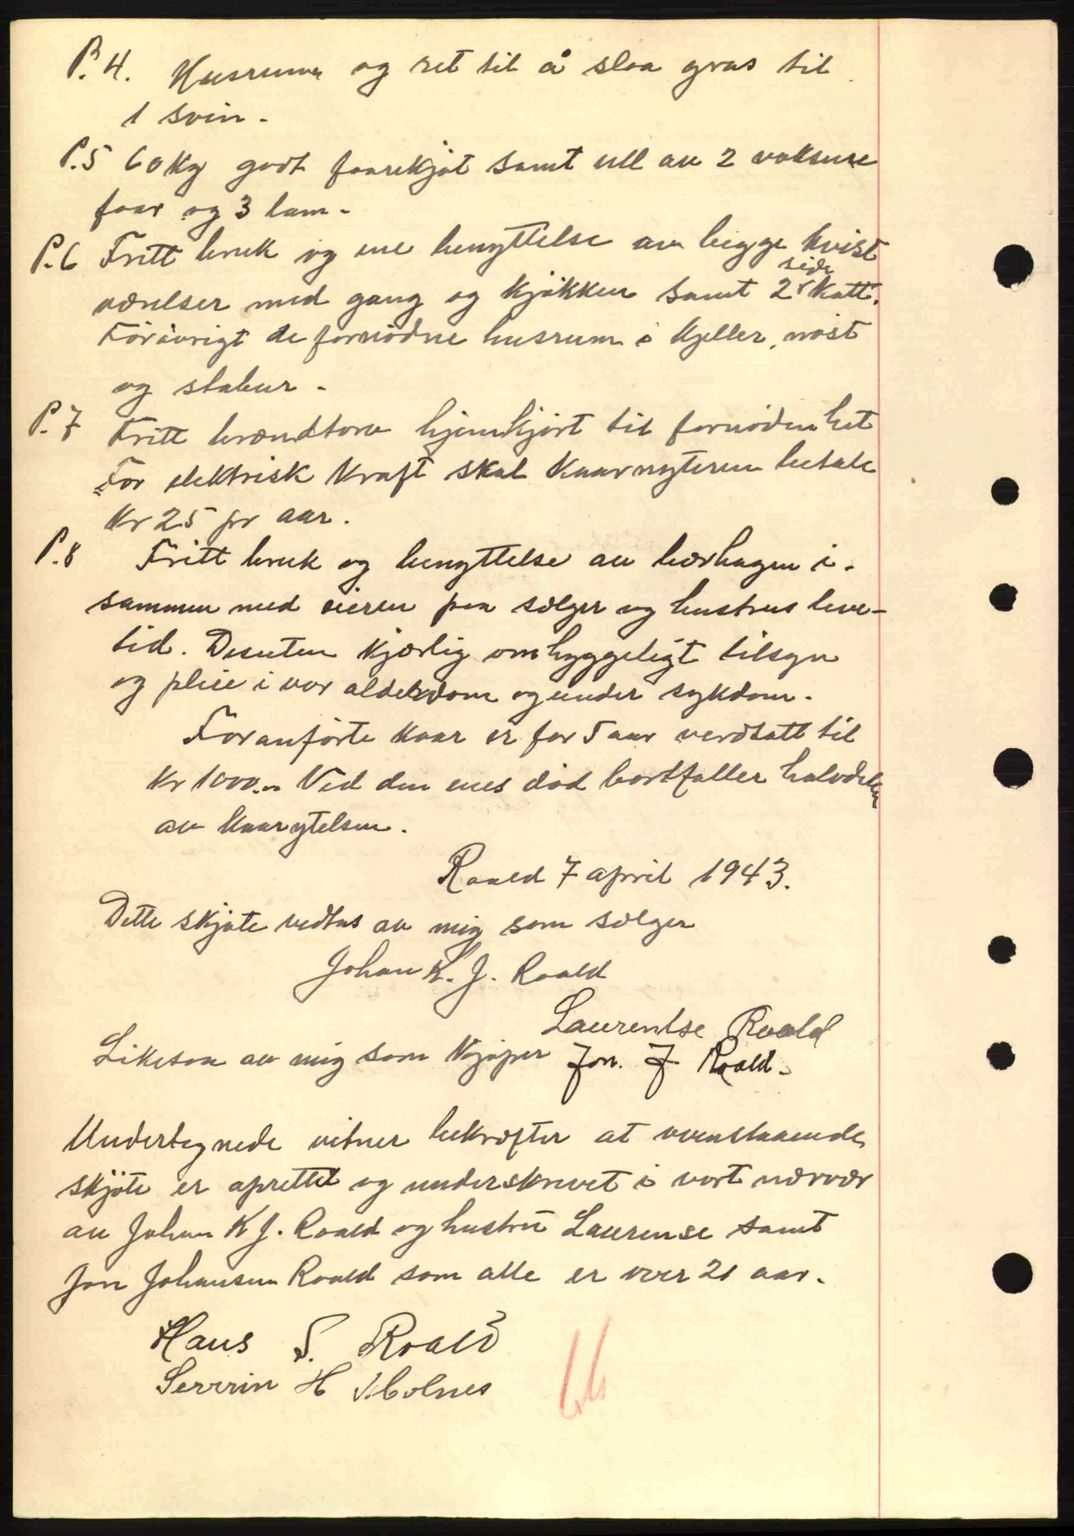 P. 4. Husrum og ret til å slaa gras til
1 svin.
P.5 60 kg godt faarekjøt samt ull av 2 voksne
faar og 3 lam.
P.6 Fritt bruk og ene benyttelse av begge kvist
værelser med gang og kjøkken samt 2 side Kott.
Forøvrigt de fornødne husrum i kjeller, nøst
og stabur.
P.7 Fritt brændtorv hjemkjørt til fornødenhet
For elektrisk Kraft skal Kaarnyteren betale
Kr 25 pr aar.
P.8 Fritt bruk og benyttelse av bærhagen i-
sammen med eieren paa sælger og hustrus leve-
tid. Desuten kjærlig omhyggeligt tilsyn
og pleie i vor alderdom og under sykdom.
Foranførte kaar er for 5 aar verdsatt til
Kr 1000.- Ved den enes død bortfaller halvdelen
av kaarytelsen.
Roald 7 april 1943.
Dette skjøte vedtas av mig som sælger
Johan K. J. Roald
Laurentse Roald
Likesaa av mig som Kjøper Jon. J Roald.
Undertegnede vitner bekræfter at ovenstaaende
skjøte er oprettet og underskrevet i vort nærvær
av Johan K J. Roald og hustru Laurense samt
Jon Johansen Roald som alle er over 21 aar.
Hans S. Roald
Severin H Molnes